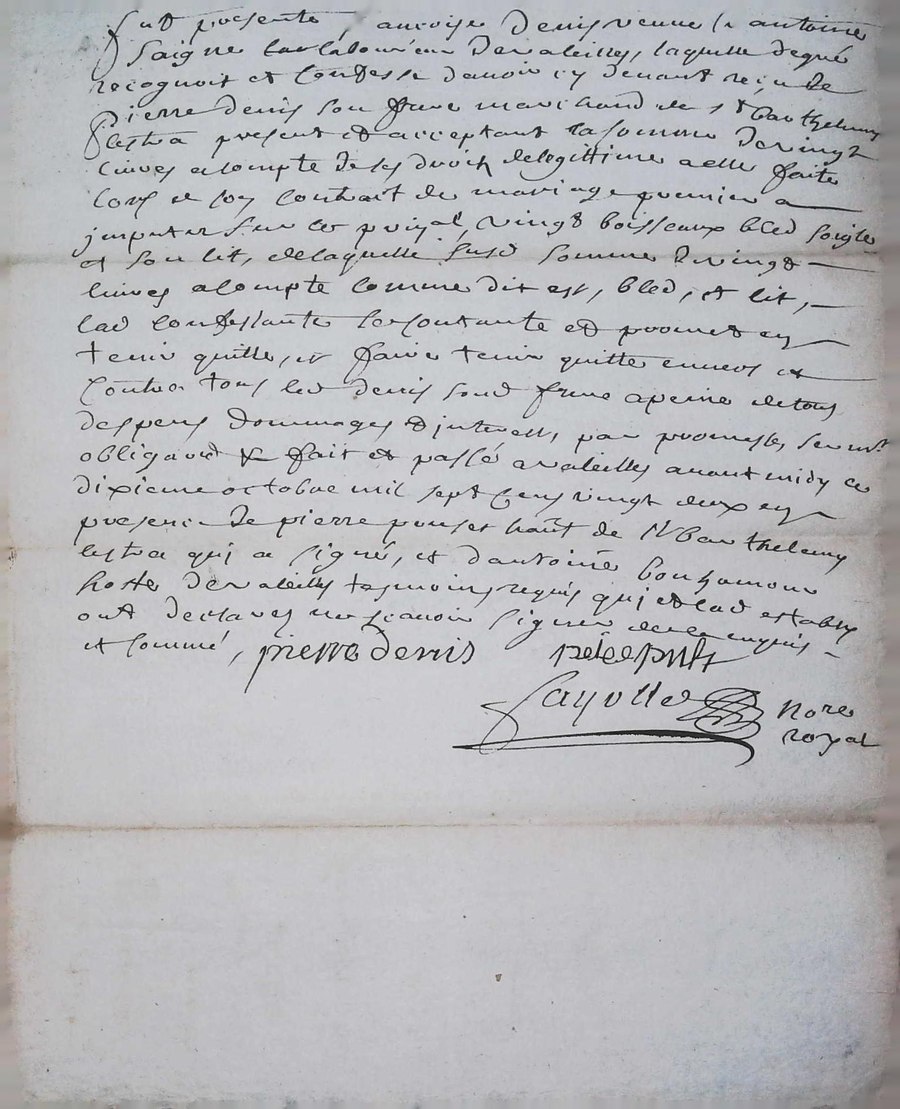 fut presente ancoise Denis veuve a antoine
Saigne laboureur de valeilles, laquelle de gré
recognoit et Confesse davoir cy devant reçu de
pierre denis son frere marchand de st barthelemy
lestra present et acceptant la somme de vingt
livres acompte de ses droits delegittime a elle faite
lors de son contrait de mariage premier a
imputer sur le prcipal, vingt boisseaux bled soigle
et son lit, de laquelle susd somme de vingt
livres acompte comme dit est, bled, et lit,
lad confessante se contante et promet en
tenir quitte, et faire tenir quitte envers et
Contre tous led denis sond frere a peine de tous
despens dommages et interest, par promesse, serm.t
obliga.on & fait et passé a valeilles avant midy ce
dixieme octobre mil sept cens vingt deux en
presence de pierre haut de st barthelemy
lestra qui a signé, et d'antoine bonhomme
hoste de valeilles tesmoins requis qui et lad establye
ont declarés ne scavoir signer de ce enquis
et sommé, pierre denis
Fayolle Nore
royal